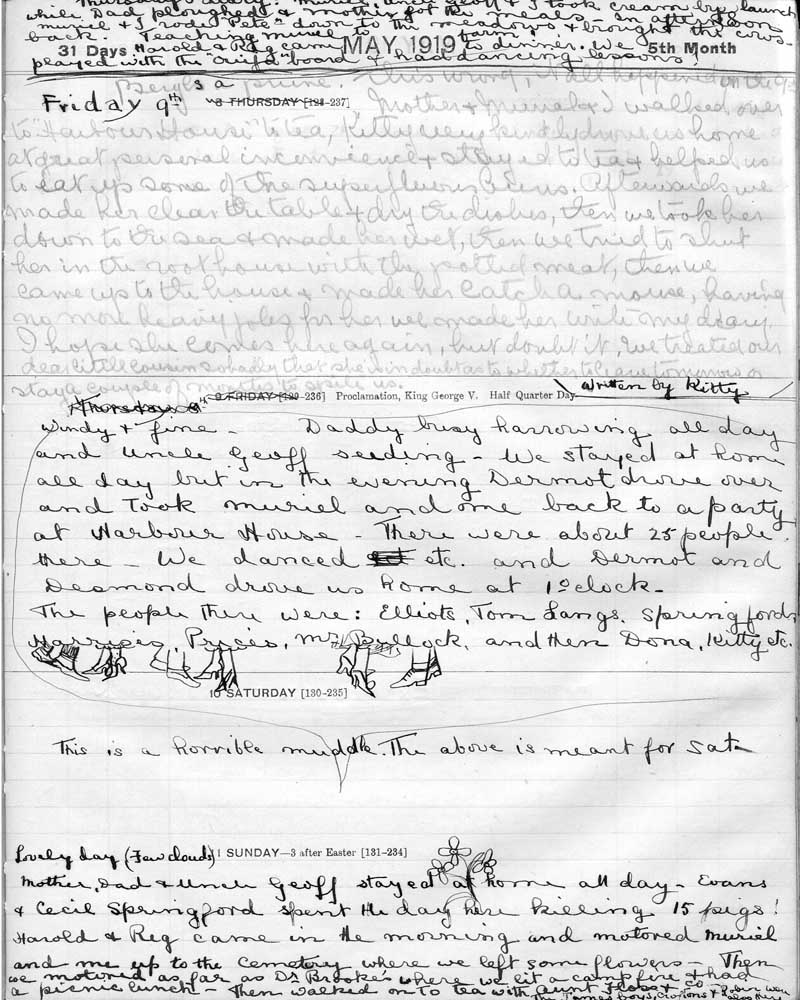 Thursday's diary: Muriel, Uncle Geoff & I took cream by launch
while Dad ploughed & mother got the meals - In afternoon
muriel & I rode "Pete" down to the meadows & brought the cows
back. Teaching muriel to farm!
31 Days Harold & Reg came MAY 1919 to dinner. We 5th Month
played with the "Ouija" board & had dancing lessons!
Beryl's a prune. This wrong, it all happened on the 9th
Friday 9th 8 THURSDAY [128-237] Mother & Muriel & I walked over
to "Harbour House" to tea, Kitty very kindly drove us home
at great personal inconvienience & stayed to tea & helped us
to eat up some of the superfluous buns. Afterwards we
made her clear the table & dry the dishes, then we took her
down to the sea & made her wet, then we tried to shut
her in the roothouse with the potted meat, then we
came up to the house & made her catch a mouse, having
no more heavy jobs for her we made her write my diary.
I hope she comes here again, but doubt it, we treated our
dear little cousin so badly that she is in doubt as to whether to leave tomorrow or
stay a couple of months to spite us.
Thursday 8th 9 FRIDAY [129-236] Proclamation, King George V. Half Quarter Day Written by Kitty
Windy & fine - Daddy busy harrowing all day
and Uncle Geoff seeding - We stayed at home
all day but in the evening Dermot drove over
and took muriel and me back to a party
at Harbour House - There were about 25 people
there - We danced etc. and Dermot and
Desmond drove us home at 1 o'clock -
The people there were: Elliots, Tom Langs, Springfords,
Harrises, Prices, Mr Bullock, and then Dona, Kitty etc.
10 SATURDAY [130-235]
This is a horrible muddle. The above is meant for Sat-
Lovely day (Few clouds) 11 SUNDAY—3 after Easter [131-234]
Mother, Dad & Uncle Geoff stayed at home all day - Evans
& Cecil Springford spent the day here killing 15 pigs!
Harold & Reg came in the morning and motored Muriel
and me up to the Cemetery where we left some flowers - Then
we motored as far as Dr Brooke's where we lit a campfire & had
a picnic lunch - Then walked on to tea with Aunt Floss & Co